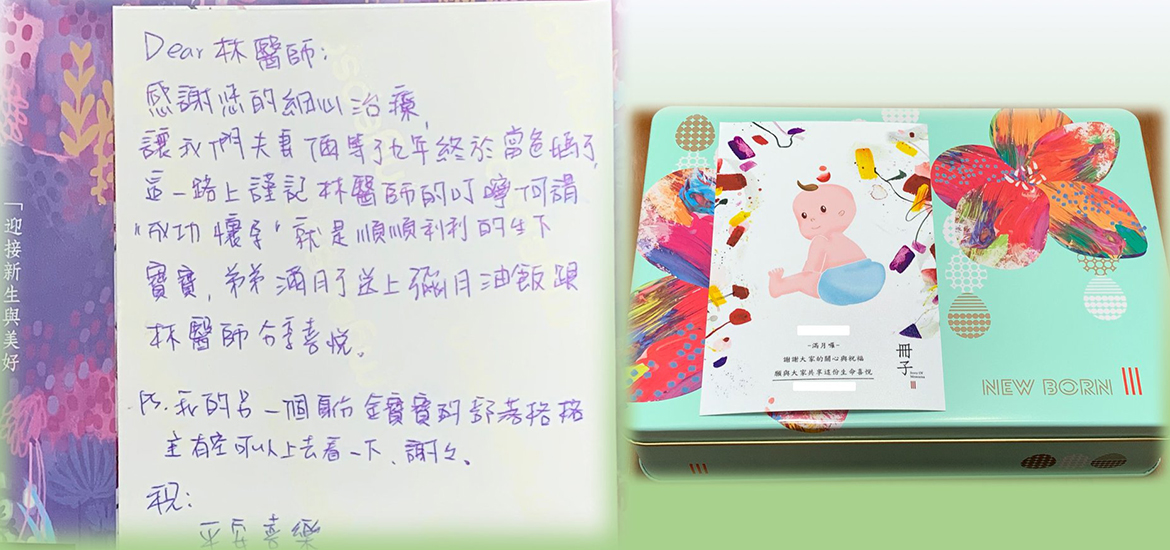 「迎接新生與美好
Dear 林醫師:
感謝您的細心治療,
讓我們夫妻倆等了九年終於當爸媽了,
這一路上謹記林醫師的叮嚀何謂
"成功懷孕"就是順順利利的生下
寶寶,弟弟滿月了送上彌月油飯跟
林醫師分享喜悅。
PS.我的另一個身份金寶寶的部落格格
主有空可以上去看一下、謝々。
祝:
平安喜樂
~滿月囉~
謝謝大家的關心與祝福
願與大家共享這份生命喜悅
冊子
NEW BORN